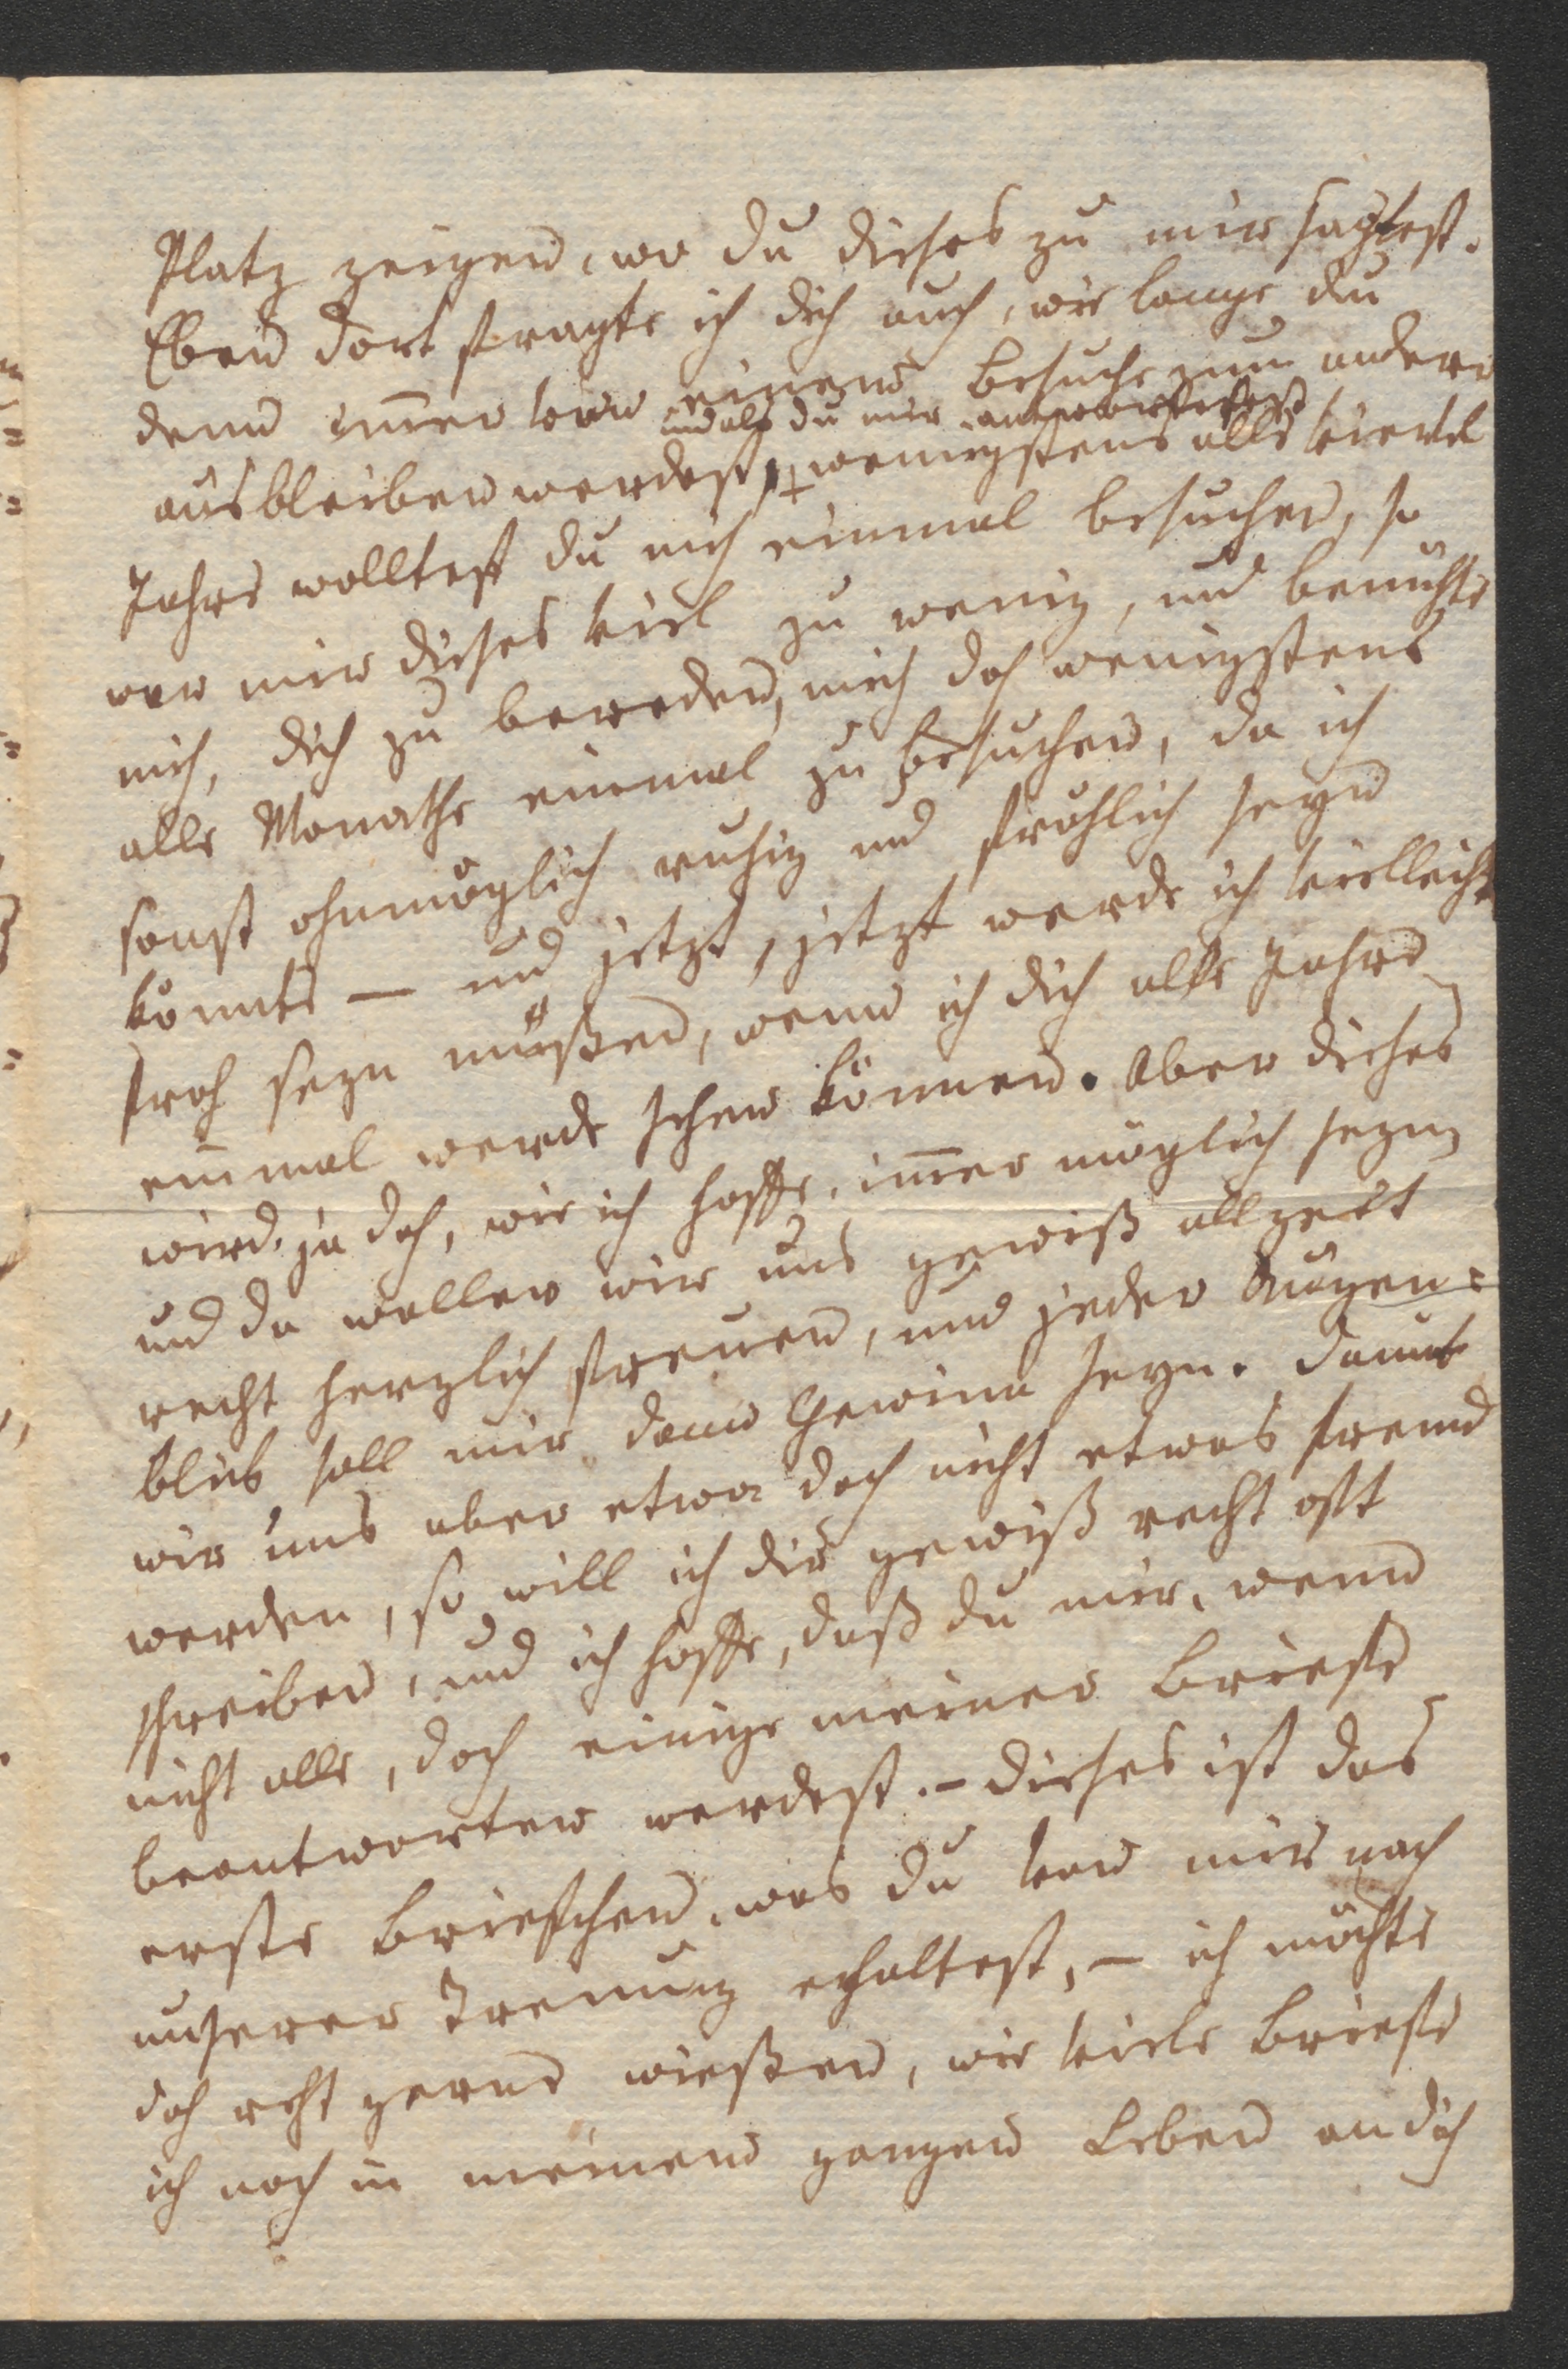 Platz zeigen, wo du dieses zu mir sagtest.
Eben dort fragte ich dich auch, wie lange du
denn im̅er von einem Besuche zum andern
ausbleiben werdest, + wenigstens alle viertel
und als du mir antwortetest
Jahre wolltest du mich einmal besuchen, so
war mir dieses viel zu wenig, und bemühte
mich, dich zu bereden, mich doch wenigstens
alle Monathe einmal zu besuchen, da ich
sonst ohnmöglich ruhig und fröhlich seyn
könnte — und jetzt, jetzt werde ich vielleicht
froh seyn müßen, wenn ich dich alle Jahre
einmal werde sehen können. Aber dieses
wird ja doch, wie ich hoffe, im̅er möglich seyn,
und da wollen wir uns gewiß allzeit
recht herzlich freuen, und jeder Augen=
blick soll mir dann Gewinn seyn. Damit
wir uns aber etwa doch nicht etwas fremd
werden, so will ich dir gewiß recht oft
schreiben, und ich hoffe, daß du mir, wenn
nicht alle, doch einige meiner Briefe
beantworten werdest. — Dieses ist das
erste Briefchen, was du von mir nach
unserer Trennung erhaltest, — ich möchte
doch recht gerne wießen, wie viele Briefe
ich noch in meinem ganzen Leben an dich